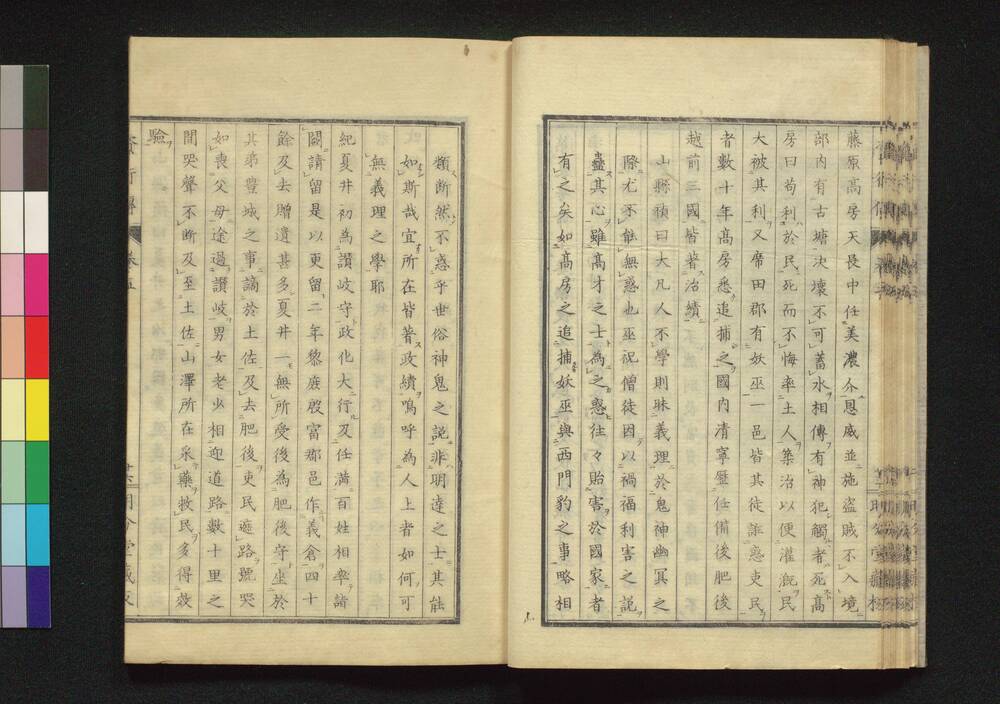 藤原高房天長中任美濃介恩威並施盜賊不入境
部内有古塘決壞不可蓄水相傳有神犯觸者死高
房曰苟利於民死而不悔率土人築治以便灌漑民
大被其利又席田郡有妖巫一邑皆其徒誑惑吏民
者數十年高房悉追捕之國内清寧歴任備後肥後
越前三國皆著治績
山縣禎曰大凡人不學則昧義理於鬼神幽冥之
際尤不能無惑也巫祝僧徒因以禍福利害之説
蠱其心雖高才之士為之惑往々貽害於國家者
有之矣如高房之追捕妖巫與西門豹之事略相
類斷然不惑乎世俗神鬼之説非明達之士其能
如斯哉宜所在皆著政績嗚呼為人上者如何可
無義理之學耶
紀夏井初為讃岐守政化大行及任滿百姓相率詣
闕請留是以更留二年黎庶殷富郡邑作義倉四十
餘及去贈遺甚多夏井一無所受後為肥後守坐於
其弟豐城之事謫於土佐及去肥後吏民遮路號哭
如喪父母途過讃岐男女老少相迎道路數十里之
間哭聲不斷及至土佐山澤所在采藥救民多得效
驗